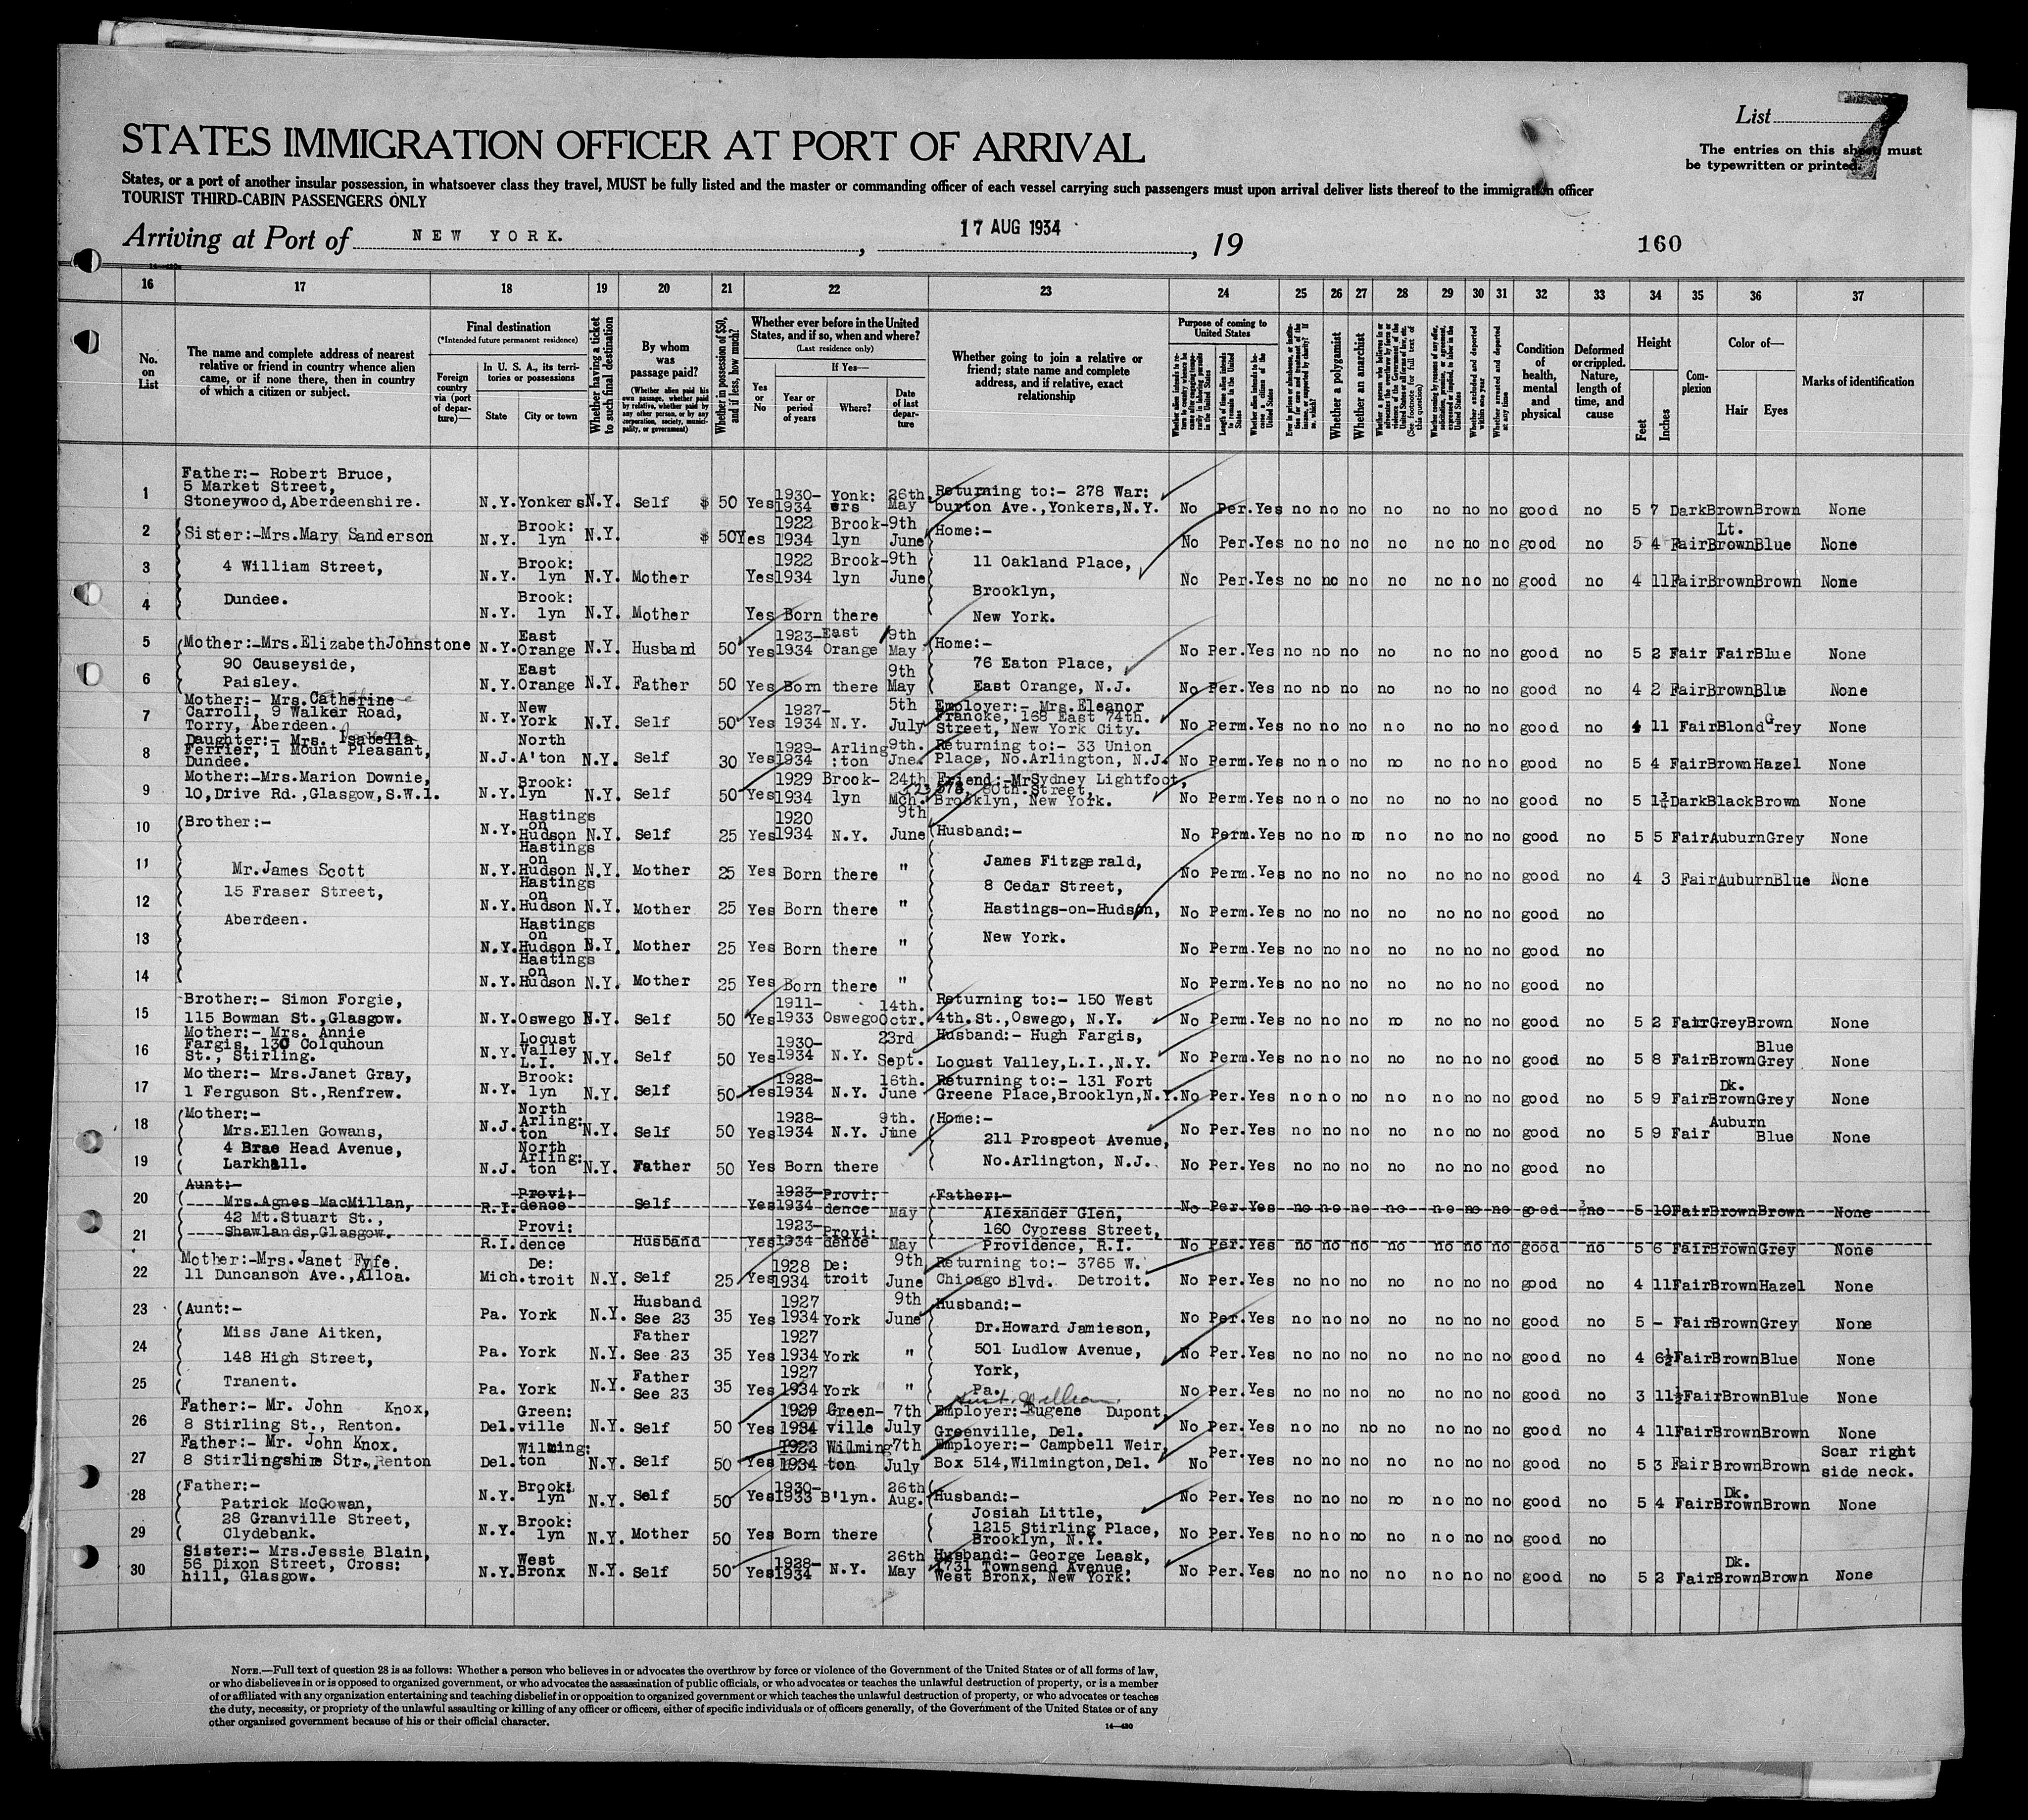 List
7
The entries on this sheet must
be typewritten or printed.
STATES IMMIGRATION OFFICER AT PORT OF ARRIVAL
States, or a port of another insular possession, in whatsoever class they travel, MUST be fully listed and the master or commanding officer of each vessel carrying such passengers must upon arrival deliver lists thereof to the immigration officer
TOURIST THIRD-CABIN PASSENGERS ONLY
Arriving at Port of NEW YORK. , 17 AUG 1934 , 19 160
16 17 18 19 20 21 22 23 24 25 26 27 28 29 30 31 32 33 34 35 36 37
No. on List
The name and complete address of nearest relative or friend in country whence alien came, or if none there, then in country of which a citizen or subject.
Final destination
(*Intended future permanent residence)
Foreign country via (port of departure)—
In U. S. A., its territories or possessions
State
City or town
Whether having a ticket to such final destination
By whom was passage paid?
(Whether alien paid his own passage, whether paid by relative, whether paid by any other person, or by any corporation, society, municipality, or government)
Whether in possession of $50, and if less, how much?
Whether ever before in the United States, and if so, when and where?
(Last residence only)
Yes or No
If Yes—
Year or period of years
Where?
Date of last departure
Whether going to join a relative or friend; state name and complete address, and if relative, exact relationship
Purpose of coming to United States
Length of time alien intends to remain in the United States
Whether alien intends to become a citizen of the United States
Whether a polygamist
Whether an anarchist
(See footnote for full text of this question)
Whether excluded and deported within one year
Whether arrested and deported at any time
Condition of health, mental and physical
Deformed or crippled. Nature, length of time, and cause
Height
Feet
Inches
Complexion
Color of—
Hair
Eyes
Marks of identification
1 Father:- Robert Bruce, 5 Market Street, Stoneywood,Aberdeenshire. N.Y. Yonkers N.Y. Self $ 50 Yes 1930-1934 Yonk:ers 26th May Returning to:- 278 War:burton Ave.,Yonkers,N.Y. No Per. Yes no no no no no no no good no 5 7 Dark Brown Brown None
2 Sister:-Mrs.Mary Sanderson N.Y. Brook:lyn N.Y. $ 50 Yes 1922 1934 Brook-lyn 9th June Home:- No Per. Yes no no no no no no no good no 5 4 Fair Lt. Brown Blue None
3 4 William Street, N.Y. Brook:lyn N.Y. Mother Yes 1922 1934 Brook-lyn 9th June 11 Oakland Place, No Per. Yes no no no no no no no good no 4 11 Fair Brown Brown None
4 Dundee. N.Y. Brook:lyn N.Y. Mother Yes Born there Brooklyn, New York.
5 Mother:-Mrs.ElizabethJohnstone N.Y. East Orange N.Y. Husband 50 Yes 1923-1934 East Orange 9th May Home:- No Per. Yes no no no no no no no good no 5 2 Fair Fair Blue None
6 90 Causeyside, Paisley. N.Y. East Orange N.Y. Father 50 Yes Born there 9th May 76 Eaton Place, East Orange, N.J. No Per. Yes no no no no no no no good no 4 2 Fair Brown Blue None
7 Mother:- Mrs.Catherine Carroll, 9 Walker Road, Torry, Aberdeen. N.Y. New York N.Y. Self 50 Yes 1927-1934 N.Y. 5th July Employer:- Mrs.Eleanor Franoke, 168 East 74th. Street, New York City. No Perm. Yes no no no no no no no good no 4 11 Fair Blond Grey None
8 Daughter:- Mrs. Isabella Ferrier, 1 Mount Pleasant, Dundee. N.J. North A'ton N.Y. Self 30 Yes 1929-1934 Arling:ton 9th. Jne. Returning to:- 33 Union Place, No.Arlington, N.J. No Perm. Yes no no no no no no no good no 5 4 Fair Brown Hazel None
9 Mother:-Mrs.Marion Downie, 10,Drive Rd.,Glasgow,S.W.1. N.Y. Brook:lyn N.Y. Self 50 Yes 1929 1934 Brook-lyn 24th Mch. Friend:-MrSydney Lightfoot, Street, Brooklyn, New York. No Perm. Yes no no no no no no no good no 5 1¾ Dark Black Brown None
10 Brother:- N.Y. Hastings on Hudson N.Y. Self 25 Yes 1920 1934 N.Y. 9th June Husband:- No Perm. Yes no no no no no no no good no 5 5 Fair Auburn Grey None
11 Mr.James Scott N.Y. Hastings on Hudson N.Y. Mother 25 Yes Born there " James Fitzgerald, No Perm. Yes no no no no no no no good no 4 3 Fair Auburn Blue None
12 15 Fraser Street, N.Y. Hastings on Hudson N.Y. Mother 25 Yes Born there " 8 Cedar Street, Hastings-on-Hudson, No Perm. Yes no no no no no no no good no
13 Aberdeen. N.Y. Hastings on Hudson N.Y. Mother 25 Yes Born there " New York. No Perm. Yes no no no no no no no good no
14 N.Y. Hastings on Hudson N.Y. Mother 25 Yes Born there " No Perm. Yes no no no no no no no good no
15 Brother:- Simon Forgie, 115 Bowman St.,Glasgow. N.Y. Oswego N.Y. Self 50 Yes 1911-1933 Oswego 14th. Octr. Returning to:- 150 West 4th.St.,Oswego, N.Y. No Perm. Yes no no no no no no no good no 5 2 Fair Grey Brown None
16 Mother:- Mrs. Annie Fargis, 130 Colquhoun St., Stirling. N.Y. Locust Valley L.I. N.Y. Self 50 Yes 1930-1934 N.Y. 23rd Sept. Husband:- Hugh Fargis, Locust Valley,L.I.,N.Y. No Perm. Yes no no no no no no no good no 5 8 Fair Brown Blue Grey None
17 Mother:- Mrs.Janet Gray, 1 Ferguson St.,Renfrew. N.Y. Brook:lyn N.Y. Self 50 Yes 1928-1934 N.Y. 16th. June Returning to:- 131 Fort Greene Place,Brooklyn,N.Y. No Per. Yes no no no no no no no good no 5 9 Fair Dk. Brown Grey None
18 Mother:- Mrs.Ellen Gowans, N.J. North Arling:ton N.Y. Self 50 Yes 1928-1934 N.Y. 9th. June Home:- 211 Prospect Avenue, No Per. Yes no no no no no no no good no 5 9 Fair Auburn Blue None
19 4 Brae Head Avenue, Larkhall. N.J. North Arling:ton N.Y. Father 50 Yes Born there No.Arlington, N.J. No Per. Yes no no no no no no no good no
20 Aunt:- Mrs.Agnes MacMillan, R.I. Provi:dence Self Yes 1923-1934 Provi:dence May Father:- Alexander Glen, No Per. Yes no no no no no no no good no 5 10 Fair Brown Brown None
21 42 Mt.Stuart St., Shawlands,Glasgow. R.I. Provi:dence Husband Yes 1923-1934 Provi:dence May 160 Cypress Street, Providence, R.I. No Per. Yes no no no no no no no good no 5 6 Fair Brown Grey None
22 Mother:-Mrs.Janet Fyfe. 11 Duncanson Ave.,Alloa. Mich. De:troit N.Y. Self 25 Yes 1928 1934 De:troit 9th June Returning to:- 3765 W. Chicago Blvd. Detroit. No Per. Yes no no no no no no no good no 4 11 Fair Brown Hazel None
23 Aunt:- Pa. York N.Y. Husband See 23 35 Yes 1927 1934 York 9th June Husband:- No Per. Yes no no no no no no no good no 5 - Fair Brown Grey None
24 Miss Jane Aitken, 148 High Street, Pa. York N.Y. Father See 23 35 Yes 1927 1934 York " Dr.Howard Jamieson, 501 Ludlow Avenue, No Per. Yes no no no no no no no good no 4 6½ Fair Brown Blue None
25 Tranent. Pa. York N.Y. Father See 23 35 Yes 1927 1934 York " York, Pa. No Per. Yes no no no no no no no good no 3 11½ Fair Brown Blue None
26 Father:- Mr. John Knox, 8 Stirling St., Renton. Del. Green:ville N.Y. Self 50 Yes 1929 1934 Green-ville 7th July Employer:- Eugene Dupont, Greenville, Del. No Per. Yes no no no no no no no good no 4 11 Fair Brown Brown None
27 Father:- Mr. John Knox. 8 Stirlingshire Str.,Renton Del. Wilming:ton N.Y. Self 50 Yes 1923 1934 Wilmington 7th July Employer:- Campbell Weir, Box 514,Wilmington,Del. No Per. Yes no no no no no no no good no 5 3 Fair Brown Brown Scar right side neck.
28 Father:- Patrick McGowan, N.Y. Brook:lyn N.Y. Self 50 Yes 1930-1933 B'lyn. 26th Aug. Husband:- Josiah Little, No Per. Yes no no no no no no no good no 5 4 Fair Dk. Brown Brown None
29 28 Granville Street, Clydebank. N.Y. Brook:lyn N.Y. Mother 50 Yes Born there 1215 Stirling Place, Brooklyn, N.Y. No Per. Yes no no no no no no no good no
30 Sister:- Mrs.Jessie Blain, 56 Dixon Street, Cross:hill, Glasgow. N.Y. West Bronx N.Y. Self 50 Yes 1928-1934 N.Y. 26th May Husband:- George Leask, 1731 Townsend Avenue, West Bronx, New York. No Per. Yes no no no no no no no good no 5 2 Fair Dk. Brown Brown None
NOTE.—Full text of question 28 is as follows: Whether a person who believes in or advocates the overthrow by force or violence of the Government of the United States or of all forms of law,
or who disbelieves in or is opposed to organized government, or who advocates the assassination of public officials, or who advocates or teaches the unlawful destruction of property, or is a member
of or affiliated with any organization entertaining and teaching disbelief in or opposition to organized government or which teaches the unlawful destruction of property, or who advocates or teaches
the duty, necessity, or propriety of the unlawful assaulting or killing of any officer or officers, either of specific individuals or of officers generally, of the Government of the United States or of any
other organized government because of his or their official character.
14—430